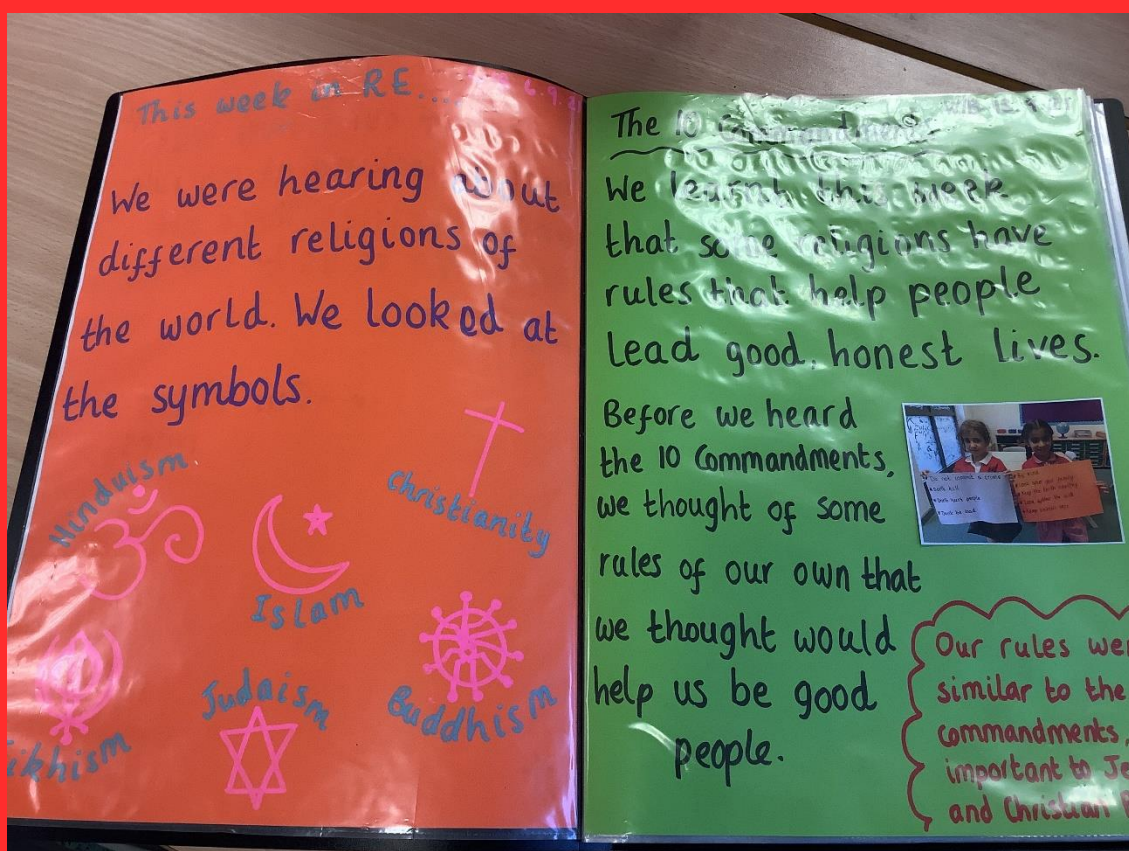 This week in RE....
6.9.21
We were hearing about
different religions of
the world. We looked at
the symbols.
Hinduism
Christianity
Islam
Sikhism
Judaism
Buddhism
The 10 Commandments
We learnt this week
that some religions have
rules that help people
lead good, honest lives.
Before we heard
the 10 Commandments,
we thought of some
rules of our own that
we thought would
help us be good
people.
Our rules wer
similar to the
commandments,
important to Je
and Christian P